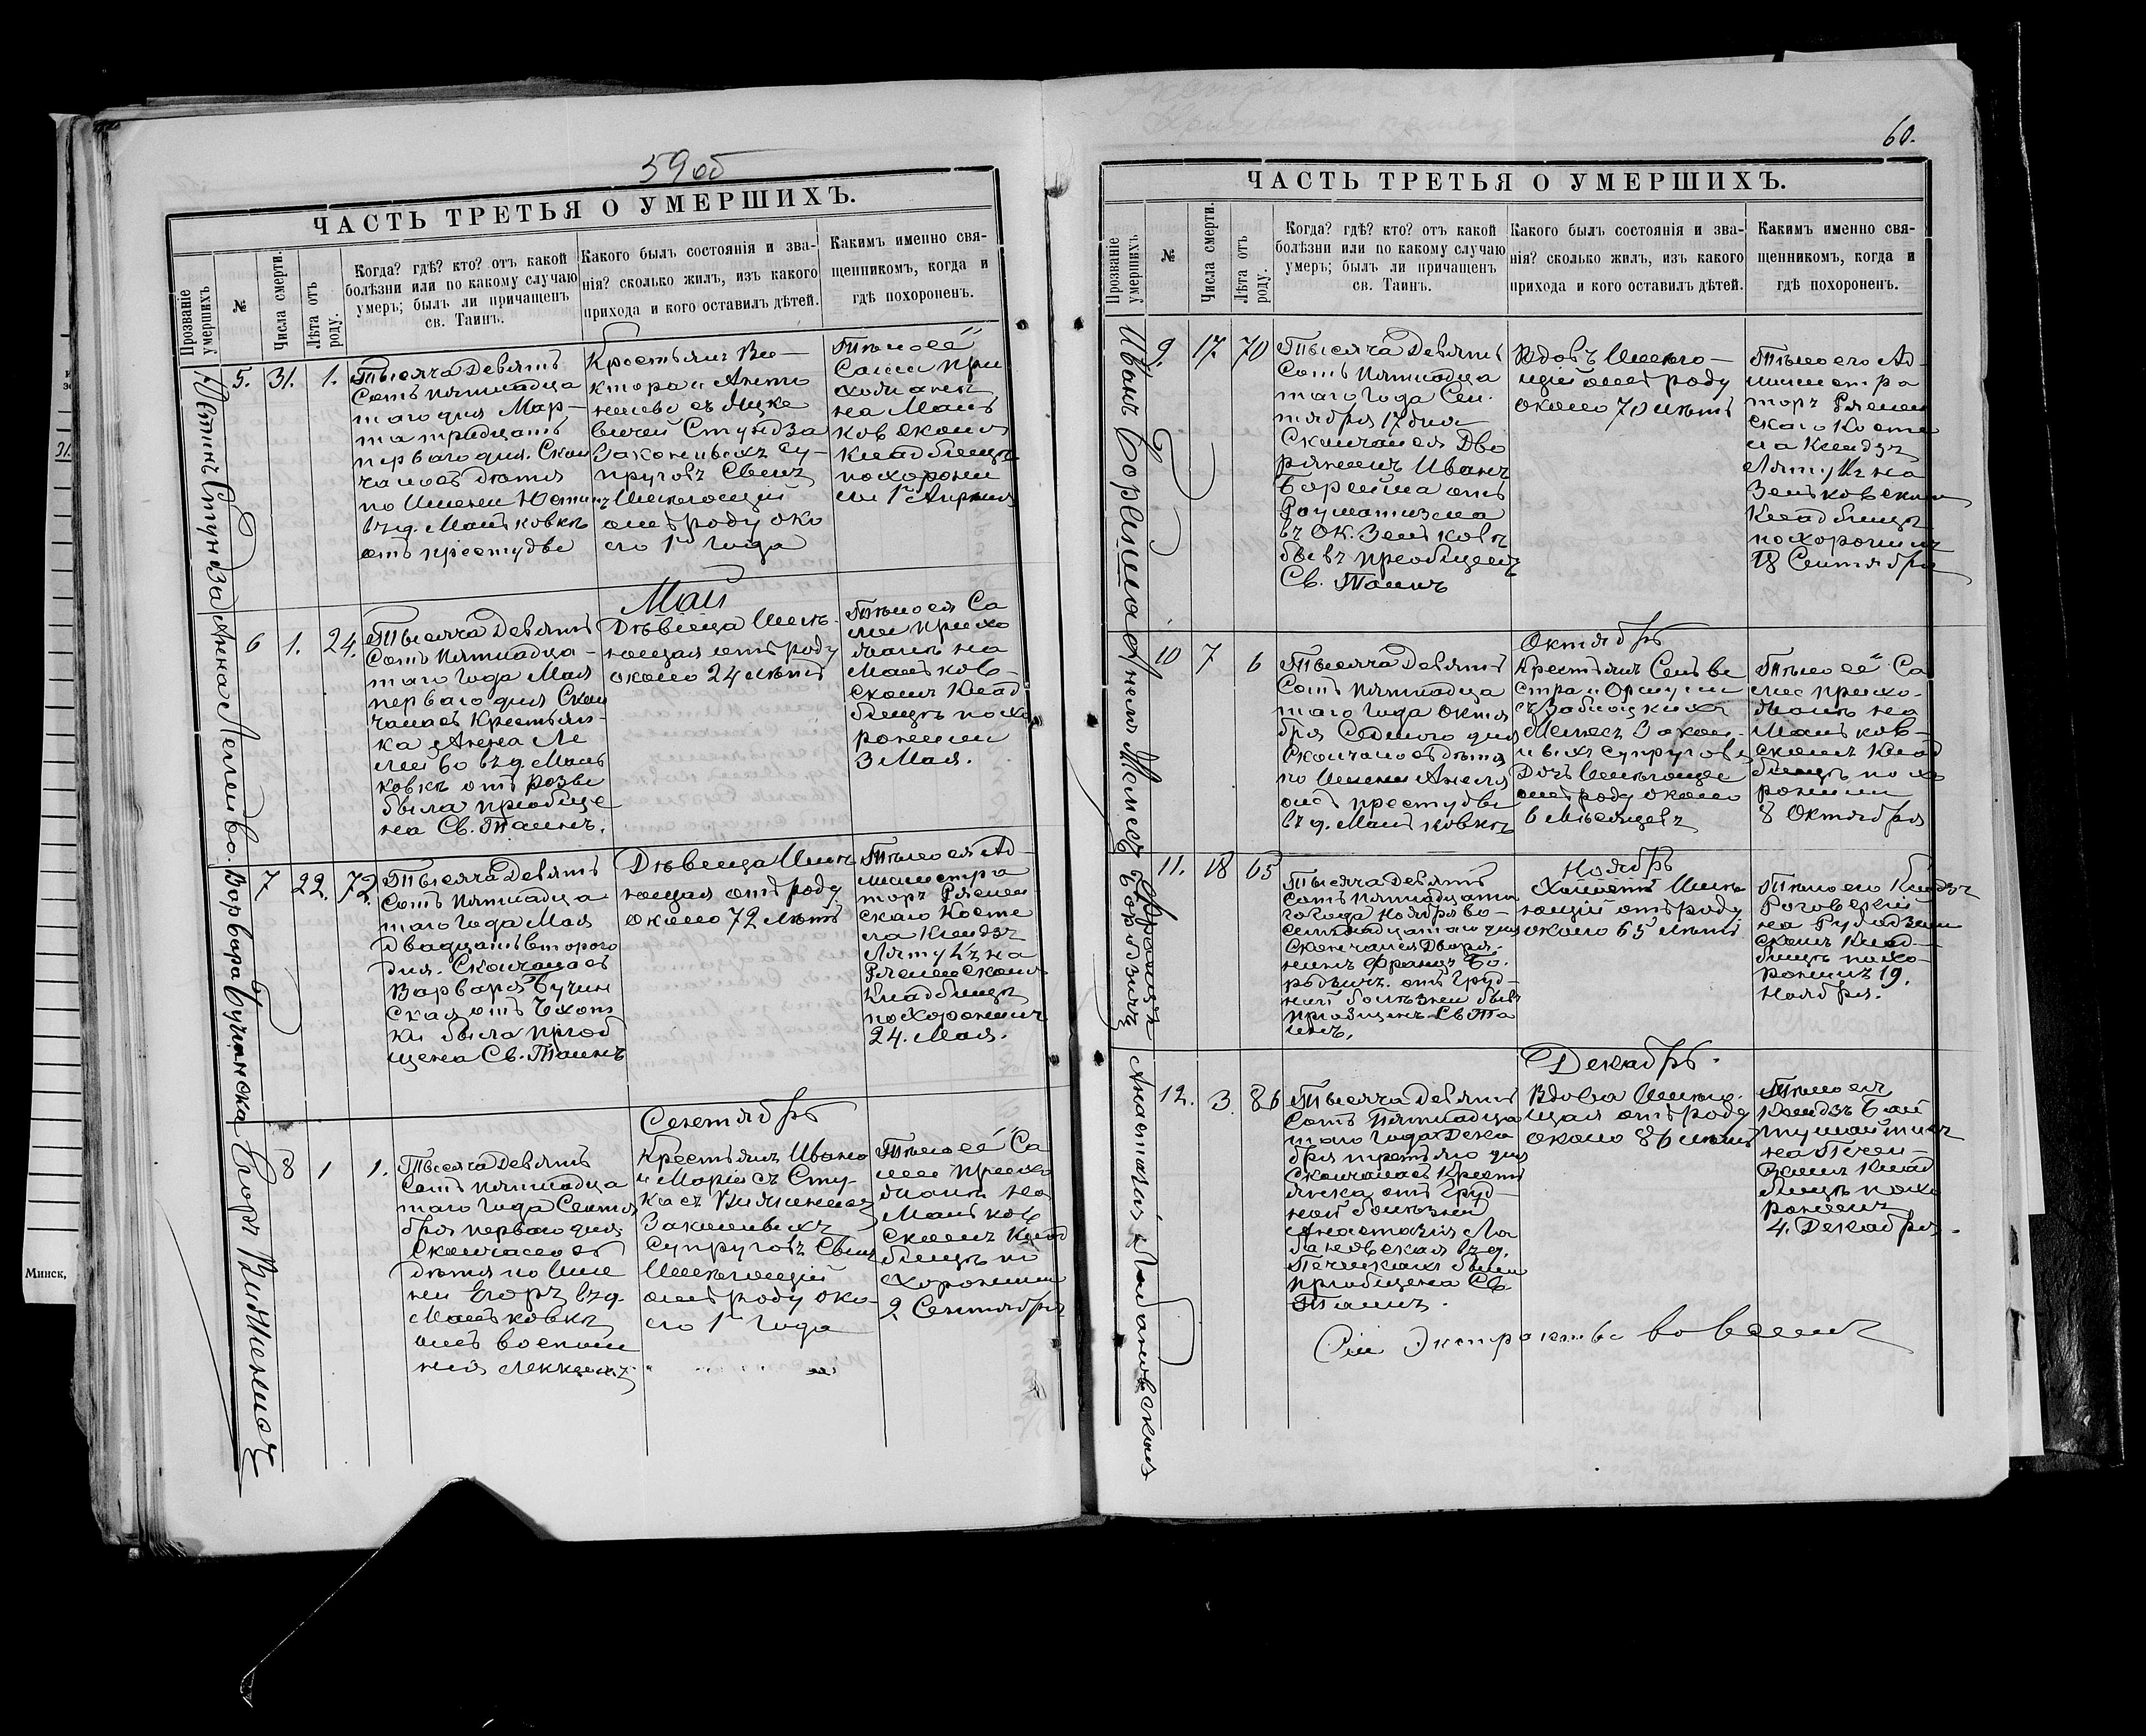 59 об
ЧАСТЬ ТРЕТЬЯ О УМЕРШИХЪ.
Прозваніе умершихъ
№
Числа смерти.
Лѣта отъ роду.
Когда? гдѣ? кто? отъ какой
болѣзни или по какому случаю
умеръ; былъ ли причащенъ
св. Таинъ.
Какого былъ состоянія и зва-
нія? сколько жилъ, изъ какого
прихода и кого оставилъ дѣтей.
Какимъ именно свя-
щенникомъ, когда и
гдѣ похороненъ.
Юстинъ Стундза
5.
31.
1.
Тысяча Девять
Сотъ пятнадца
таго дня Мар-
та тридцать
перваго дня. Скон
чалось дитя
по Имени Юстинъ
въ д. Маньковкѣ
отъ простуды
Крестьянъ Ви-
ктора и Анто
нины съ
Стундза
Законныхъ Су-
пруговъ Сынъ
Имѣющій
отъ роду око
ло 1 Года
Тѣло её
Сами при
хожане
на Мань
ковском
Кладбищѣ
похорони
ли 1 Апрѣля
Май
Анна Леш во.
6
1.
24.
Тысяча Девять
Сотъ Пятнадца-
таго Года Мая
перваго дня Скон
чалась Крестьян-
ка Анна Ле
въ д. Мань
ковкѣ отъ
была приобще
на Св. Таинъ.
Дѣвица Имѣ-
ющая отъ роду
около 24 лѣтъ
Тѣло ея Са
ми прихо
жане на
Маньков-
скомъ Клад
бищѣ похо
ронили
3 Мая.
Варвара Бучинска
7
22.
72.
Тысяча Девять
Сотъ Пятнадца
таго Года Мая
двадцать второго
дня. Скончалась
Варвара Бучин
ская отъ Чахот
ки была приоб
щена Св. Таинъ
Дѣвица Имѣ
ющая отъ роду
около 72 лѣтъ
Тѣло ея Ад-
министра
торъ
скаго Косте
ла Ксендзъ
на
Кладбищѣ
похоронилъ
24. Мая.
Сентябрь
Егоръ
8
1
1.
Тысяча Девять
Сотъ пятнадца
таго Года Сентя
бря перваго дня
Скончалось
дитя по Име
ни Егоръ въ д.
Маньковкѣ
отъ воспале
нія
Крестьянъ Ивана
и Маріи съ
Законныхъ
Супруговъ Сынъ
Имѣющій
отъ роду око-
ло 1 Года
Тѣло её Са
ми прихо
жане на
Маньков
скомъ Клад
бищѣ по
хоронили
2 Сентября
Минск,
60.
ЧАСТЬ ТРЕТЬЯ О УМЕРШИХЪ.
Прозваніе умершихъ
№
Числа смерти.
Лѣта отъ роду.
Когда? гдѣ? кто? отъ какой
болѣзни или по какому случаю
умеръ; былъ ли причащенъ
св. Таинъ.
Какого былъ состоянія и зва-
нія? сколько жилъ, изъ какого
прихода и кого оставилъ дѣтей.
Какимъ именно свя-
щенникомъ, когда и
гдѣ похороненъ.
Иванъ Борейша
9.
17.
70
Тысяча Девять
Сотъ Пятнадца
таго Года Сен-
тября 17 дня
Скончался Дво
рянинъ Иванъ
Борейша отъ
Роуматизма
въ ОК. Зеньковѣ
бывъ преобщенъ
Св. Таинъ
Вдовъ Имѣю-
щій отъ роду
около 70 лѣтъ
Тѣло его Ад-
министра
торъ
скаго Косте
ла Ксендзъ
на
Зеньковским
Кладбищѣ
похоронилъ
18 Сентября
Октябрь
10
7
6
Тысяча Девять
Сотъ Пятнадца
таго Года Октя
бря Седмого дня
Скончалось дитя
по Имени Анеля
отъ простуды
въ д. Маньковкѣ
Крестьянъ Сельве
стра и
съ Заблоцкихъ
Закон-
ныхъ супруговъ
Дочь Имѣюще
отъ роду около
6 Мѣсяцевъ
Тѣло её Са
ми прихо-
жане на
Маньков-
скомъ Клад
бищѣ похо
ронили
8 Октября
Ноябрь
11.
18
65
Тысяча Девять
Сотъ Пятнадцата
го Года Ноября во-
семнадцатаго дня
Скончался Дворя-
нинъ Францъ Бо-
отъ Груд-
ной болѣзни бывъ
приобщенъ Св Та
инъ.
Холостъ Имѣ
ющій отъ роду
около 65 лѣтъ
Тѣло его Ксендзъ
Роговскій
на
скомъ Клад-
бищѣ похо-
ронилъ 19.
Ноября.
Декабрь.
Анастазія Лобановская
12.
3
86
Тысяча Девять
Сотъ Пятнадца
таго Года Дека
бря третьяго дня
Скончалась Кресть
янка отъ Груд-
ной болѣзни
Анастазія Ло
бановская въ д.
была
приобщена Св
Таинъ.
Вдова Имѣю-
щая отъ роду
около 86 лѣтъ
Тѣло ея
Ксендзъ
на
Клад
бищѣ похо
ронилъ
4. Декабря.